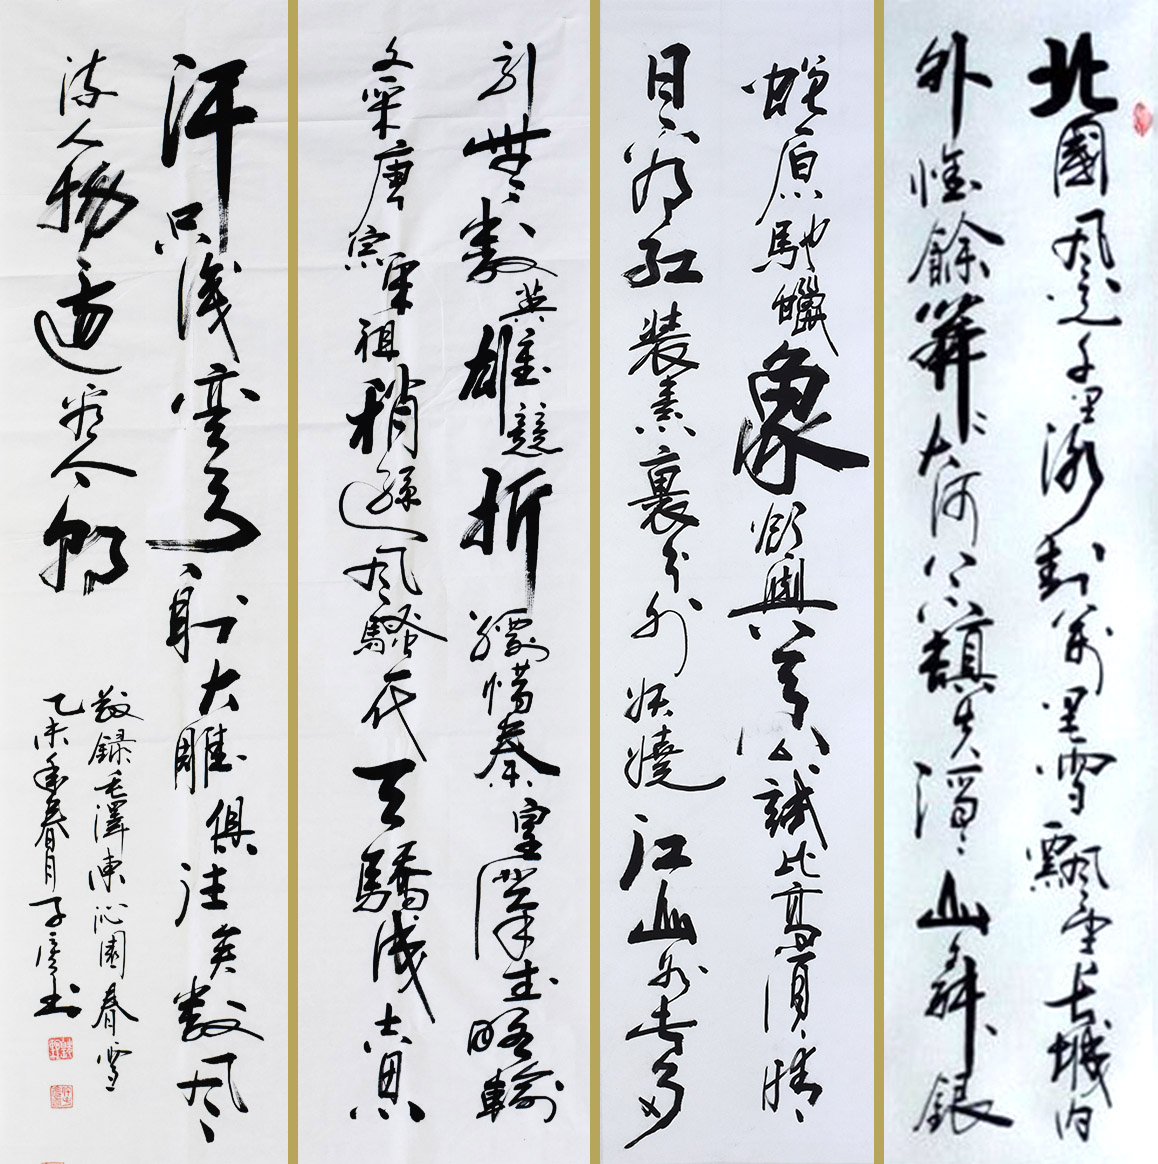 北國風光千里冰封萬里雪飄望長城內
外惟餘莽莽大河上下頓失滔滔山舞銀
蛇原馳蠟象欲與天公試比高須晴
日看紅裝素裹分外妖嬈江山如此多
引無數英雄競折腰惜秦皇漢武略輸
文采唐宗宋祖稍遜風騷一代天驕成吉思
汗只識彎弓射大雕俱往矣數風
流人物還看今朝
敬錄毛澤東沁園春雪
乙未年春月子书